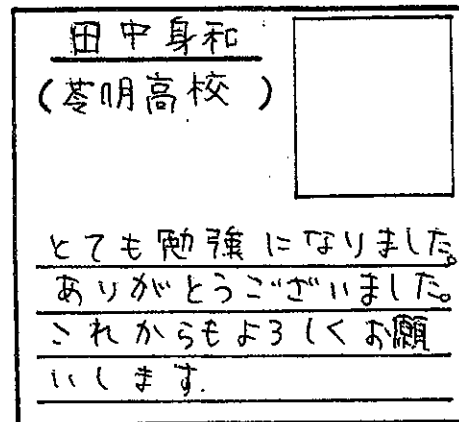 田中身和
(苓明高校)
とても勉強になりました。
ありがとうございました。
これからもよろしくお願
いします.